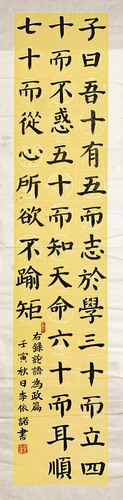 子曰吾十有五而志於學三十而立四
十而不惑五十而知天命六十而耳順
七十而從心所欲不踰矩
右錄論語為政篇
壬寅秋日李依諾書